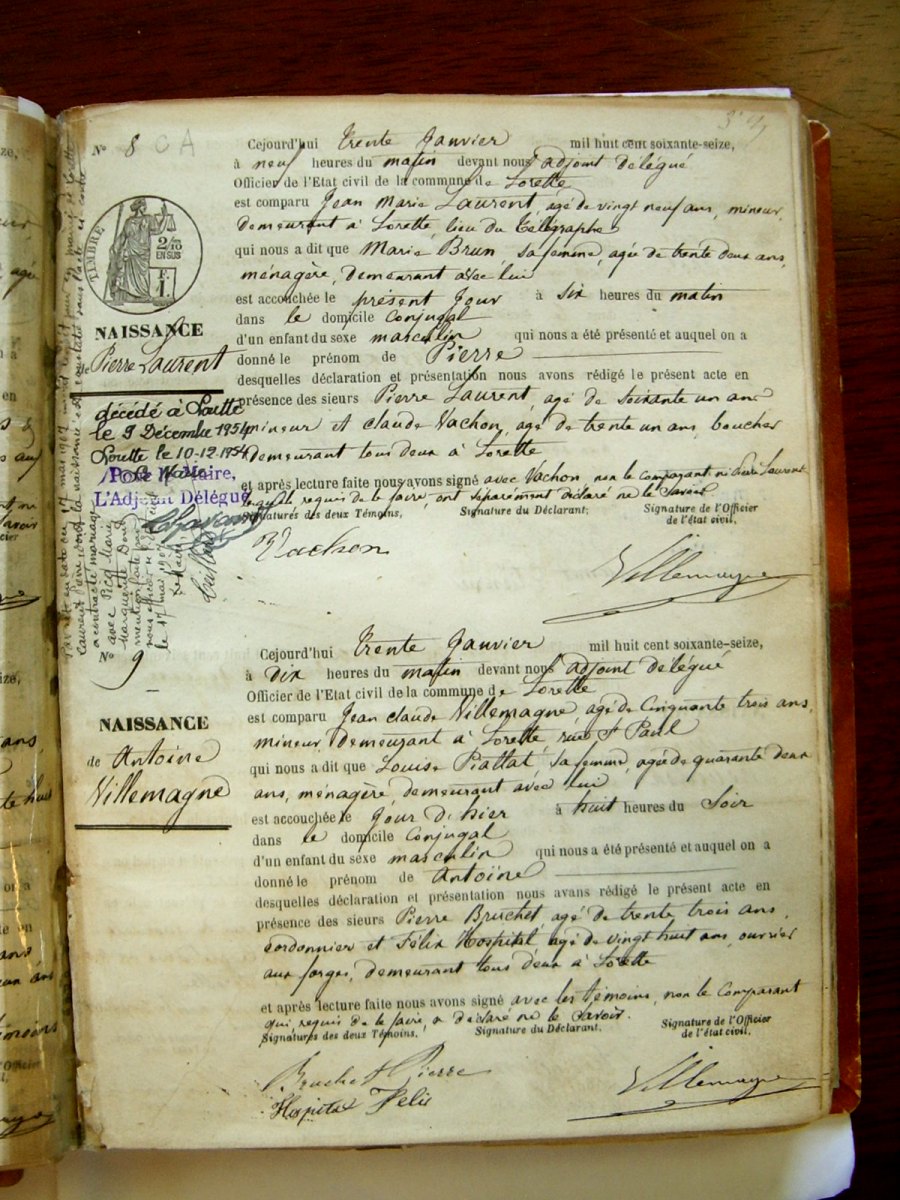 N° 8 CA
TIMBRE
2/10
EN SUS
NAISSANCE
de Pierre Laurent
décédé à Lorette
le 9 Décembre 1954
Lorette le 10-12-1954
Pour le Maire,
L'Adjoint Délégué,
a contracté mariage
avec Picq Marie
mention faite par
nous officier
le 17 mai 1907
Le Maire
Cejourd'hui trente Janvier mil huit cent soixante-seize,
à neuf heures du matin devant nous l'adjoint délégué
Officier de l'Etat civil de la commune de Lorette
est comparu Jean Marie Laurent, agé de vingt neuf ans, mineur,
demeurant à Lorette, lieu du Télégraphe
qui nous a dit que Marie Brun, sa femme, agée de trente deux ans,
ménagère, demeurant avec lui
est accouchée le présent Jour à six heures du matin
dans le domicile Conjugal
d'un enfant du sexe masculin qui nous a été présenté et auquel on a
donné le prénom de Pierre
desquelles déclaration et présentation nous avons rédigé le présent acte en
présence des sieurs Pierre Laurent agé de soixante un ans
mineur et Claude Vachon, agé de trente un ans, boucher
demeurant tous deux à Lorette
et après lecture faite nous avons signé avec Vachon non le comparant ni Pierre Laurent
requis de le faire, ont séparément déclaré ne le Savoir
Signatures des deux Témoins, Signature du Déclarant: Signature de l'Officier
de l'état civil.
Vachon
Villemagne
N° 9
NAISSANCE
de Antoine
Villemagne
Cejourd'hui trente Janvier mil huit cent soixante-seize,
à dix heures du matin devant nous l'adjoint délégué
Officier de l'Etat civil de la commune de Lorette
est comparu Jean Claude Villemagne, agé de Cinquante trois ans,
mineur, demeurant à Lorette rue St Paul
qui nous a dit que Louise Piattat, sa femme, agée de quarante deux
ans, ménagère, demeurant avec lui
est accouchée le Jour d'hier à huit heures du Soir
dans le domicile Conjugal
d'un enfant du sexe masculin qui nous a été présenté et auquel on a
donné le prénom de Antoine
desquelles déclaration et présentation nous avons rédigé le présent acte en
présence des sieurs Pierre Bruchet agé de trente trois ans,
cordonnier et Félix Hospital agé de vingt huit ans, ouvrier
aux forges, demeurant tous deux à Lorette
et après lecture faite nous avons signé avec les témoins, non le Comparant
qui requis de le faire, a déclaré ne le Savoir.
Signatures des deux Témoins. Signature du Déclarant. Signature de l'Officier
de l'état civil.
Bruchet Pierre
Hospital Félix
Villemagne